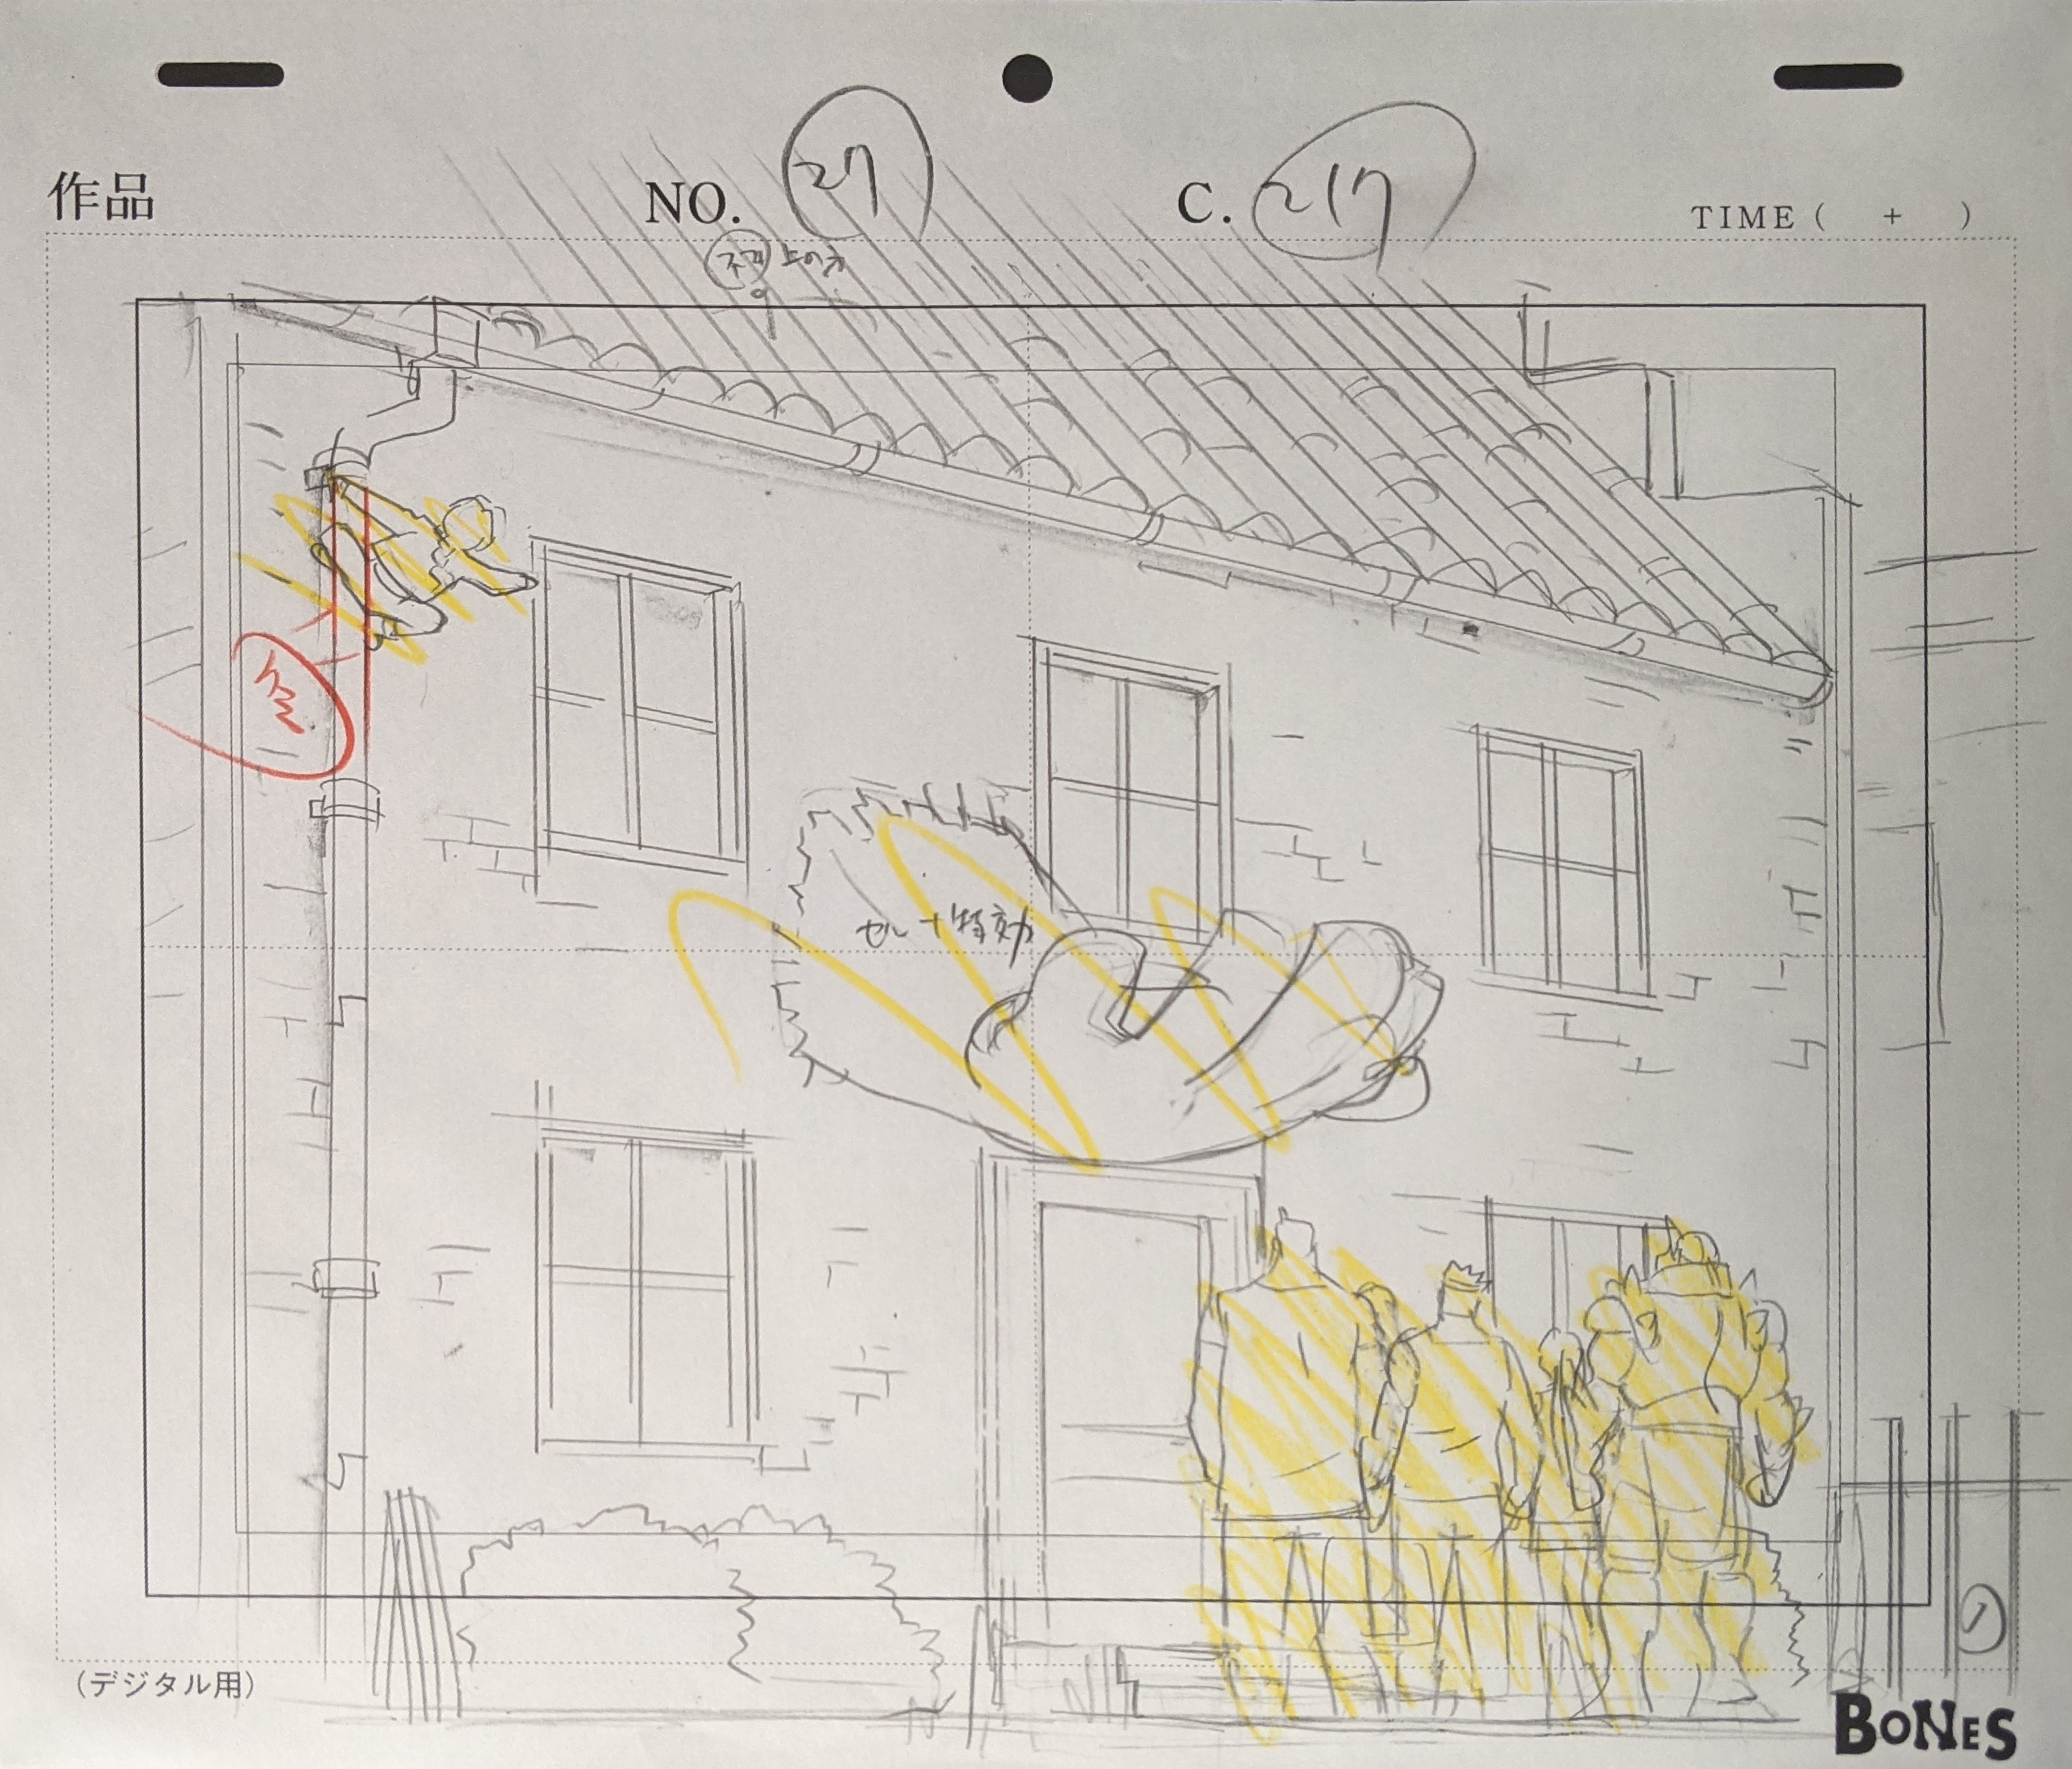 作品
NO. 27
C. 217
TIME ( + )
セル+特効
(デジタル用)
BONES